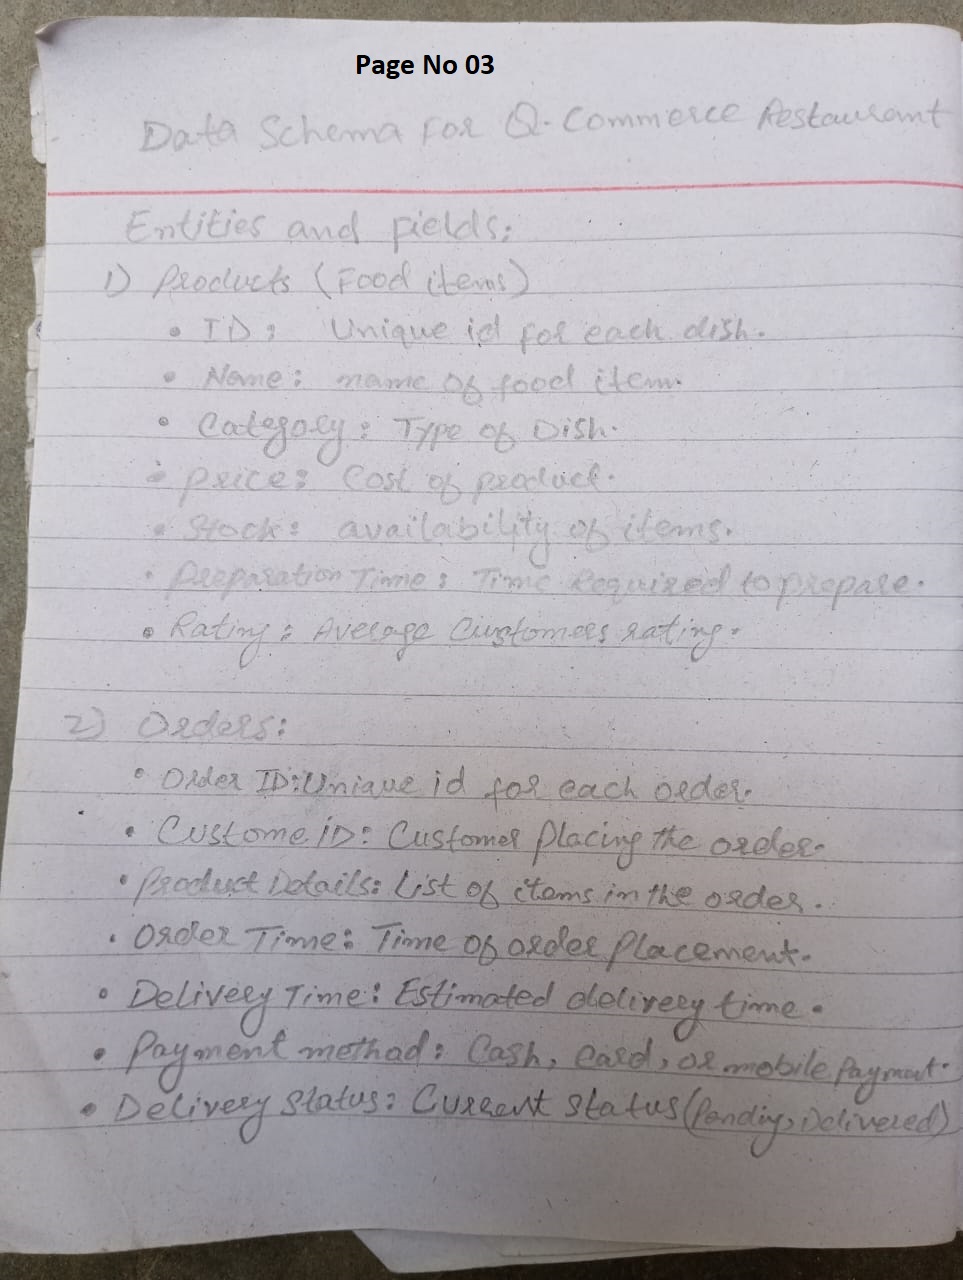 Page No 03
Data Schema For Q-Commerce Restaurant
Entities and fields:
1) Products (Food items)
• ID: Unique id for each dish.
• Name: name of food item.
• Category: Type of Dish.
• Price: Cost of product.
• Stock: availability of items.
• Preparation Time: Time Required to prepare.
• Rating: Average Customers rating.
2) Orders:
• Order ID: Unique id for each order.
• Custome iD: Customer Placing the order.
• Product Details: List of items in the order.
• Order Time: Time of order Placement.
• Delivery Time: Estimated delivery time.
• Payment method: Cash, Card, or mobile Payment.
• Delivery Status: Current Status (Pending, Delivered)